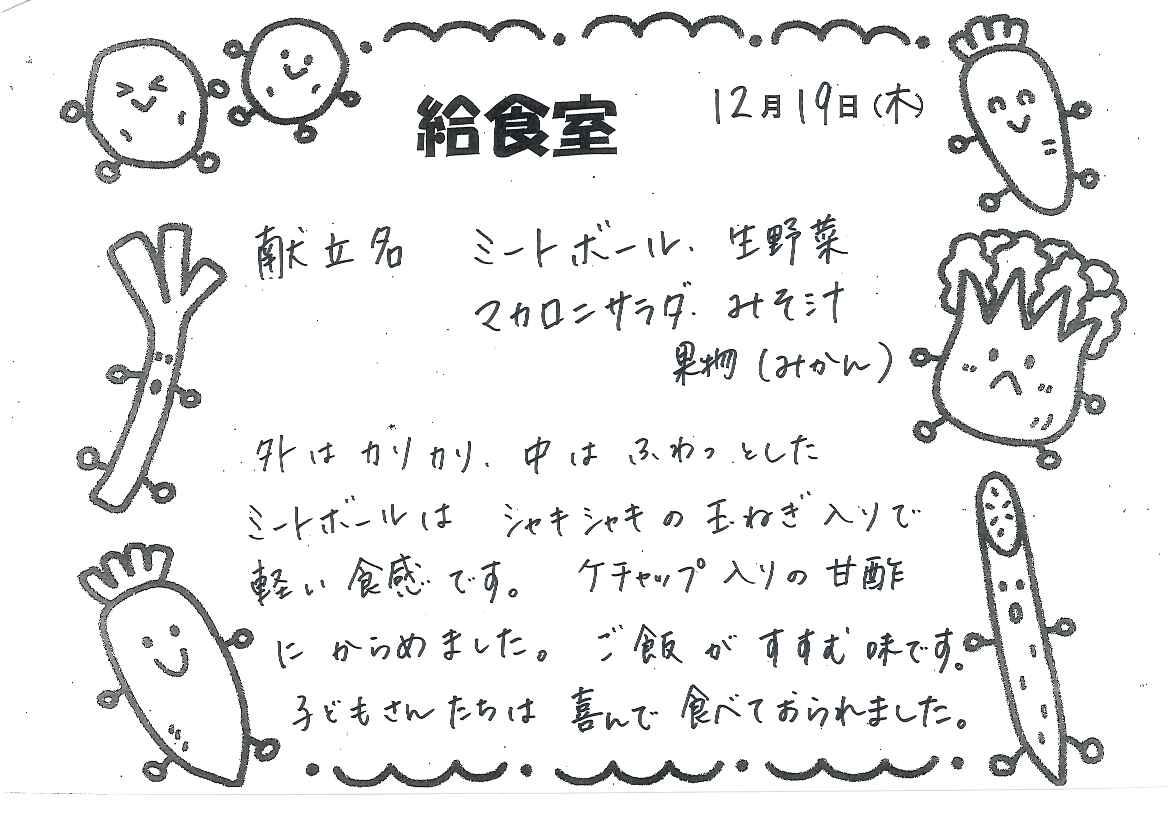 給食室 12月19日(木)
献立名 ミートボール、生野菜
マカロニサラダ、みそ汁
果物(みかん)
外はカリカリ、中はふわっとした
ミートボールは シャキシャキの玉ねぎ入りで
軽い食感です。 ケチャップ入りの甘酢
にからめました。 ご飯がすすむ味です。
子どもさんたちは喜んで食べておられました。